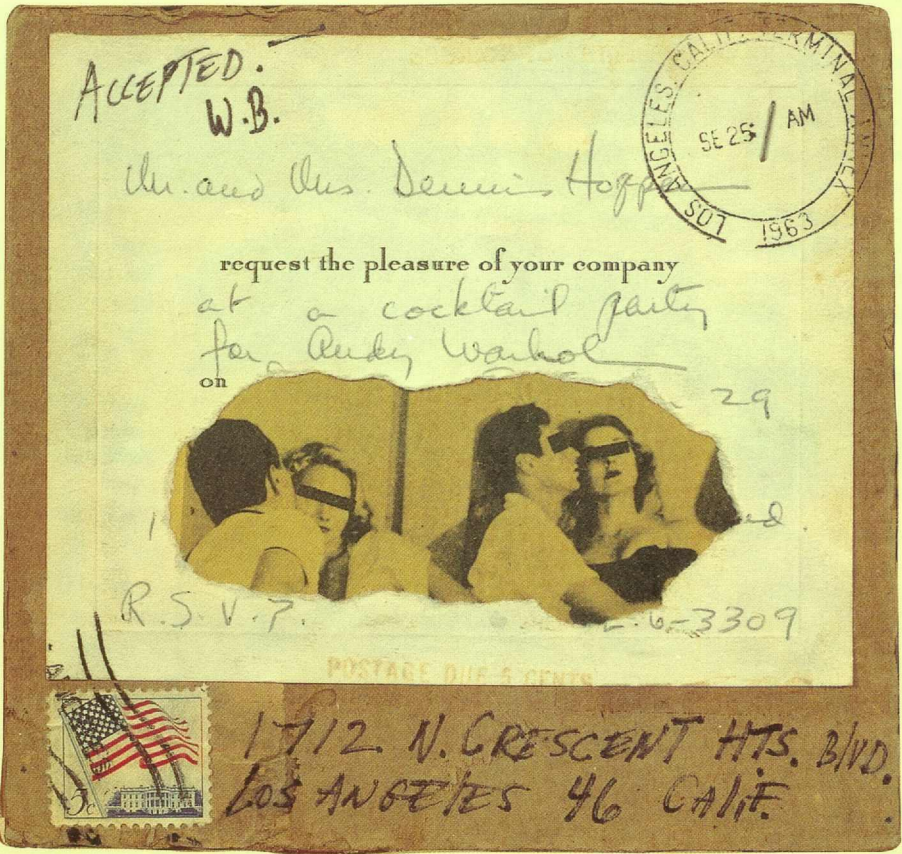 ACCEPTED.
W.B.
LOS ANGELES, CALIF. TERMINAL ANNEX
SE 25 AM
1963
Mr. and Mrs. Dennis Hopper
request the pleasure of your company
at a cocktail party
for Andy Warhol
on
29
R.S.V.P.
6-3309
POSTAGE DUE 5 CENTS
5c
1712 N. CRESCENT HTS. BlVD.
LOS ANGElES 46 CALIF.